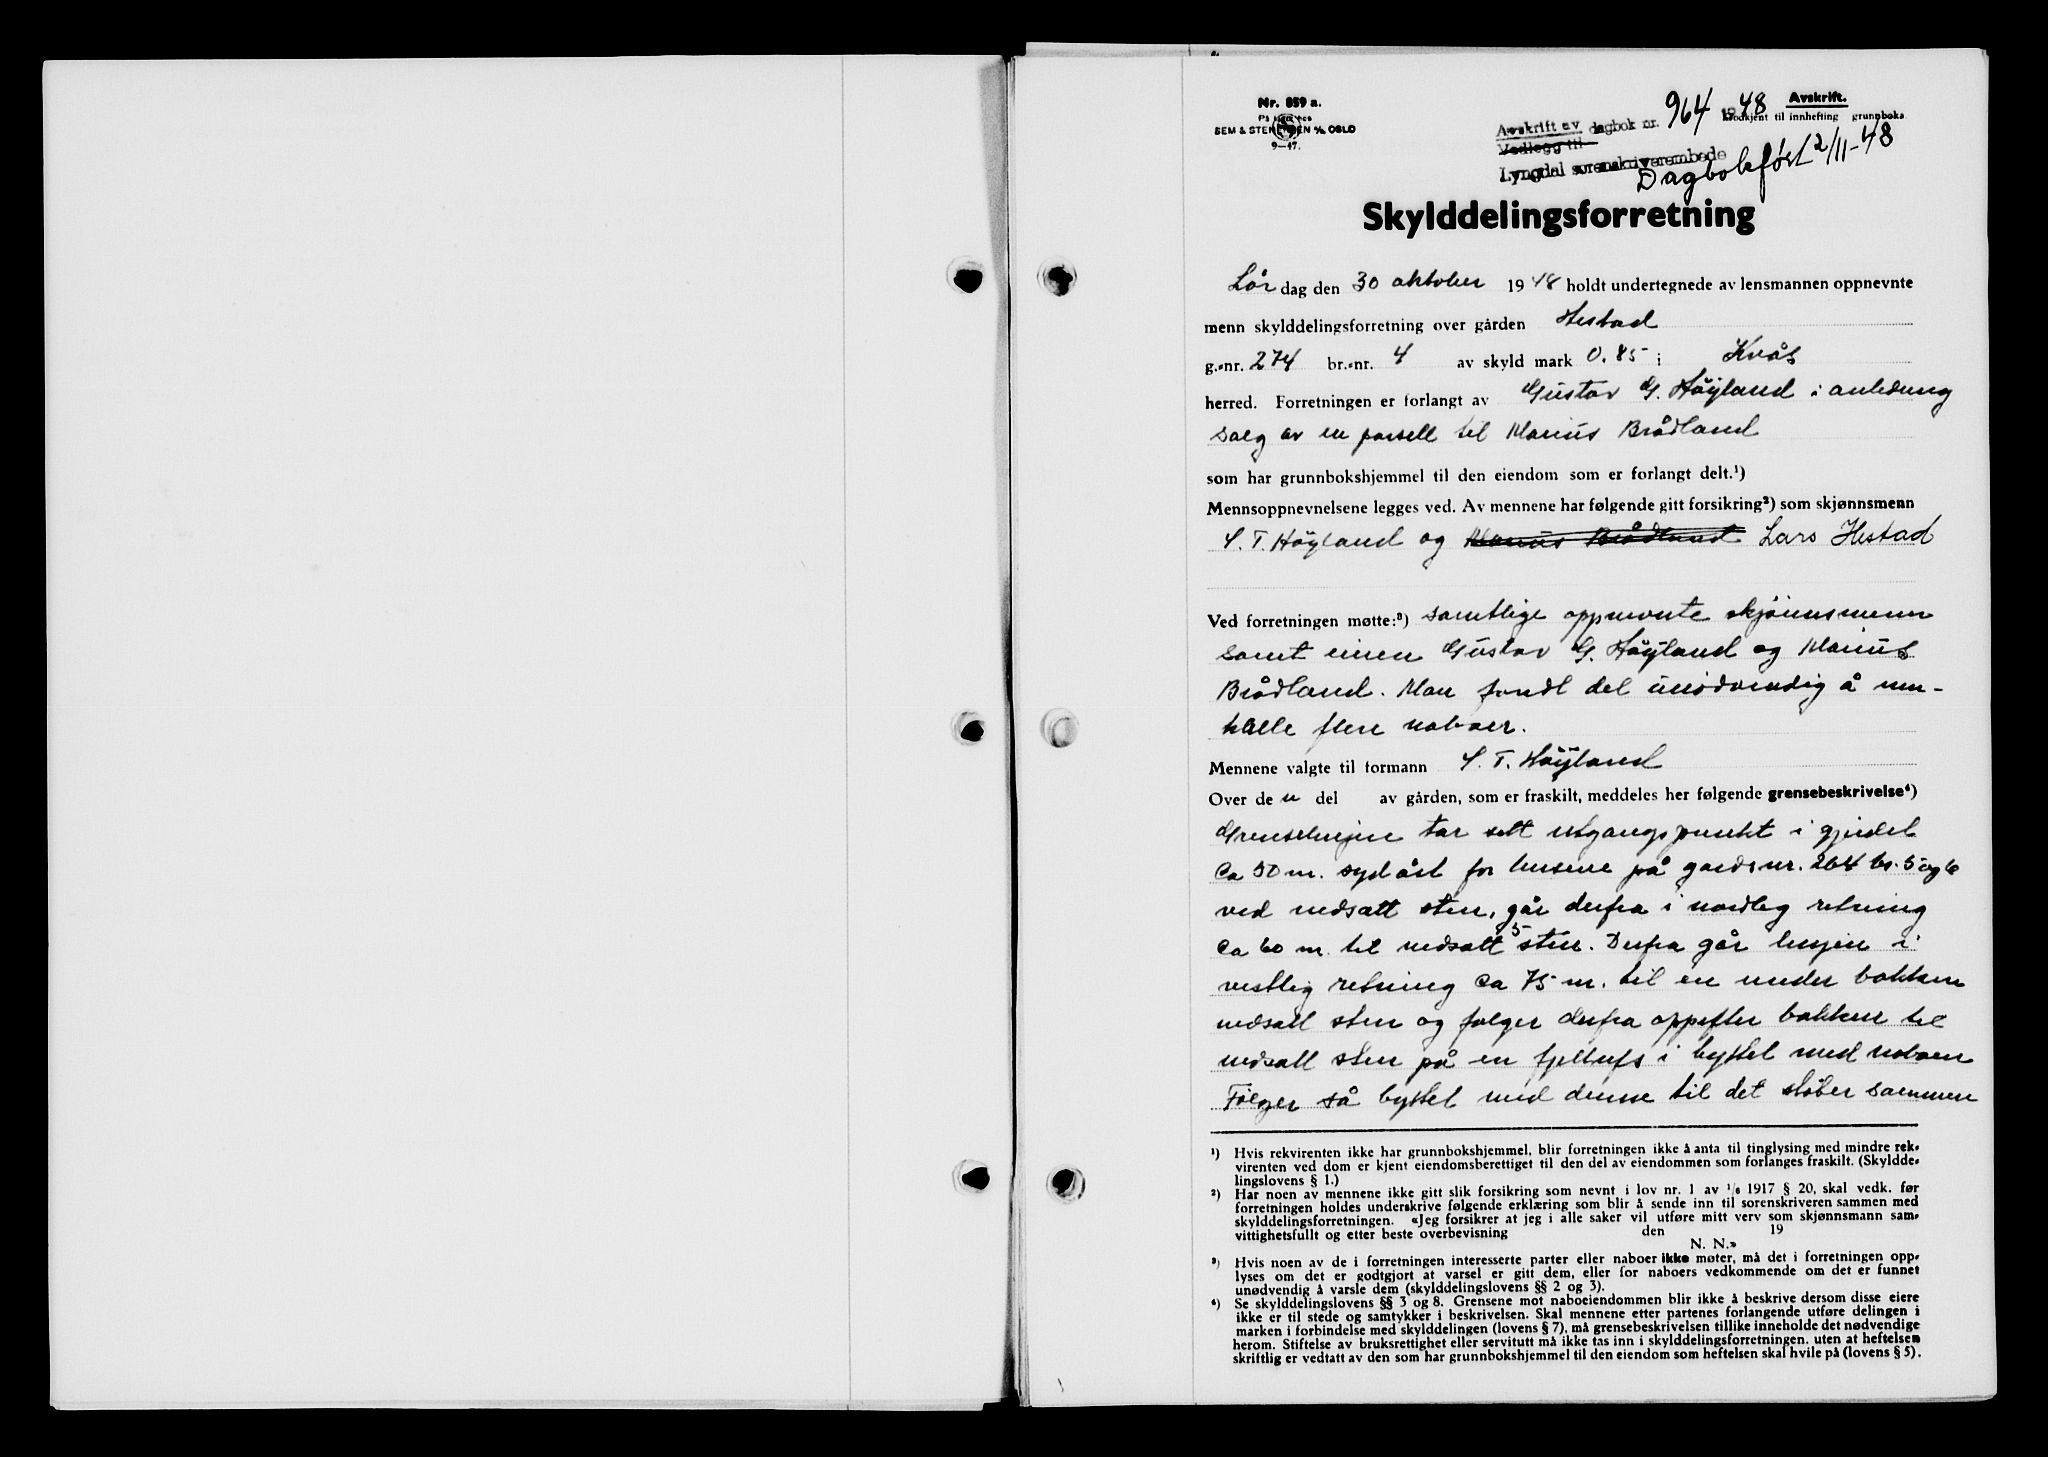 Nr. 859 a.
SEM & STENERSEN A/S OSLO
9—47.
Avskrift av dagbok nr. 964 1948
Vedlegg til
Lyngdal sorenskriverembede
Avskrift.
Godkjent til innhefting grunnboka
Dagbokført 2/11-48
Skylddelingsforretning
Lør dag den 30 oktober 1948 holdt undertegnede av lensmannen oppnevnte
menn skylddelingsforretning over gården Hestad
g.-nr. 274 br.-nr. 4 av skyld mark 0.85 i Kvås
herred. Forretningen er forlangt av Gustav G. Høyland i anledning
salg av en parsell til Marius Brådland
som har grunnbokshjemmel til den eiendom som er forlangt delt.¹)
Mennsoppnevnelsene legges ved. Av mennene har følgende gitt forsikring²) som skjønnsmenn
S. T. Høyland og Marius Brådland Lars Hestad
Ved forretningen møtte:³) samtlige oppnevnte skjønnsmenn
samt eieren Gustav G. Høyland og Marius
Brådland. Man fandt det unødvendig å inn-
kalle flere naboer.
Mennene valgte til formann S. T. Høyland
Over den del av gården, som er fraskilt, meddeles her følgende grensebeskrivelse⁴)
Grenselinjen tar sitt utgangspunkt i gjerdet
ca 50 m. sydøst for husene på gardsnr. 264 br. 5 og 6
ved nedsatt sten, går derfra i nordlig retning
ca 60 m. til nedsatt sten. Derfra går linjen i
vestlig retning ca 75 m. til en under bakken
nedsatt sten og følger derfra oppefter bakken til
nedsatt sten på en fjellnfs i byttet med naboen
Følger så byttet med denne til det støter sammen
¹) Hvis rekvirenten ikke har grunnbokshjemmel, blir forretningen ikke å anta til tinglysing med mindre rek-
virenten ved dom er kjent eiendomsberettiget til den del av eiendommen som forlanges fraskilt. (Skyldde-
lingslovens § 1.)
²) Har noen av mennene ikke gitt slik forsikring som nevnt i lov nr. 1 av 1/6 1917 § 20, skal vedk. før
forretningen holdes underskrive følgende erklæring som blir å sende inn til sorenskriveren sammen med
skylddelingsforretningen. «Jeg forsikrer at jeg i alle saker vil utføre mitt verv som skjønnsmann sam-
vittighetsfullt og etter beste overbevisning den 19
N. N.»
³) Hvis noen av de i forretningen interesserte parter eller naboer ikke møter, må det i forretningen opp-
lyses om det er godtgjort at varsel er gitt dem, eller for naboers vedkommende om det er funnet
unødvendig å varsle dem (skylddelingslovens §§ 2 og 3).
⁴) Se skylddelingslovens §§ 3 og 8. Grensene mot naboeiendommen blir ikke å beskrive dersom disse eiere
ikke er til stede og samtykker i beskrivelsen. Skal mennene etter partenes forlangende utføre delingen i
marken i forbindelse med skylddelingen (lovens § 7), må grensebeskrivelsen tillike inneholde det nødvendige
herom. Stiftelse av bruksrettighet eller servitutt må ikke tas inn i skylddelingsforretningen, uten at heftelsen
skriftlig er vedtatt av den som har grunnbokshjemmel til den eiendom som heftelsen skal hvile på (lovens § 5).